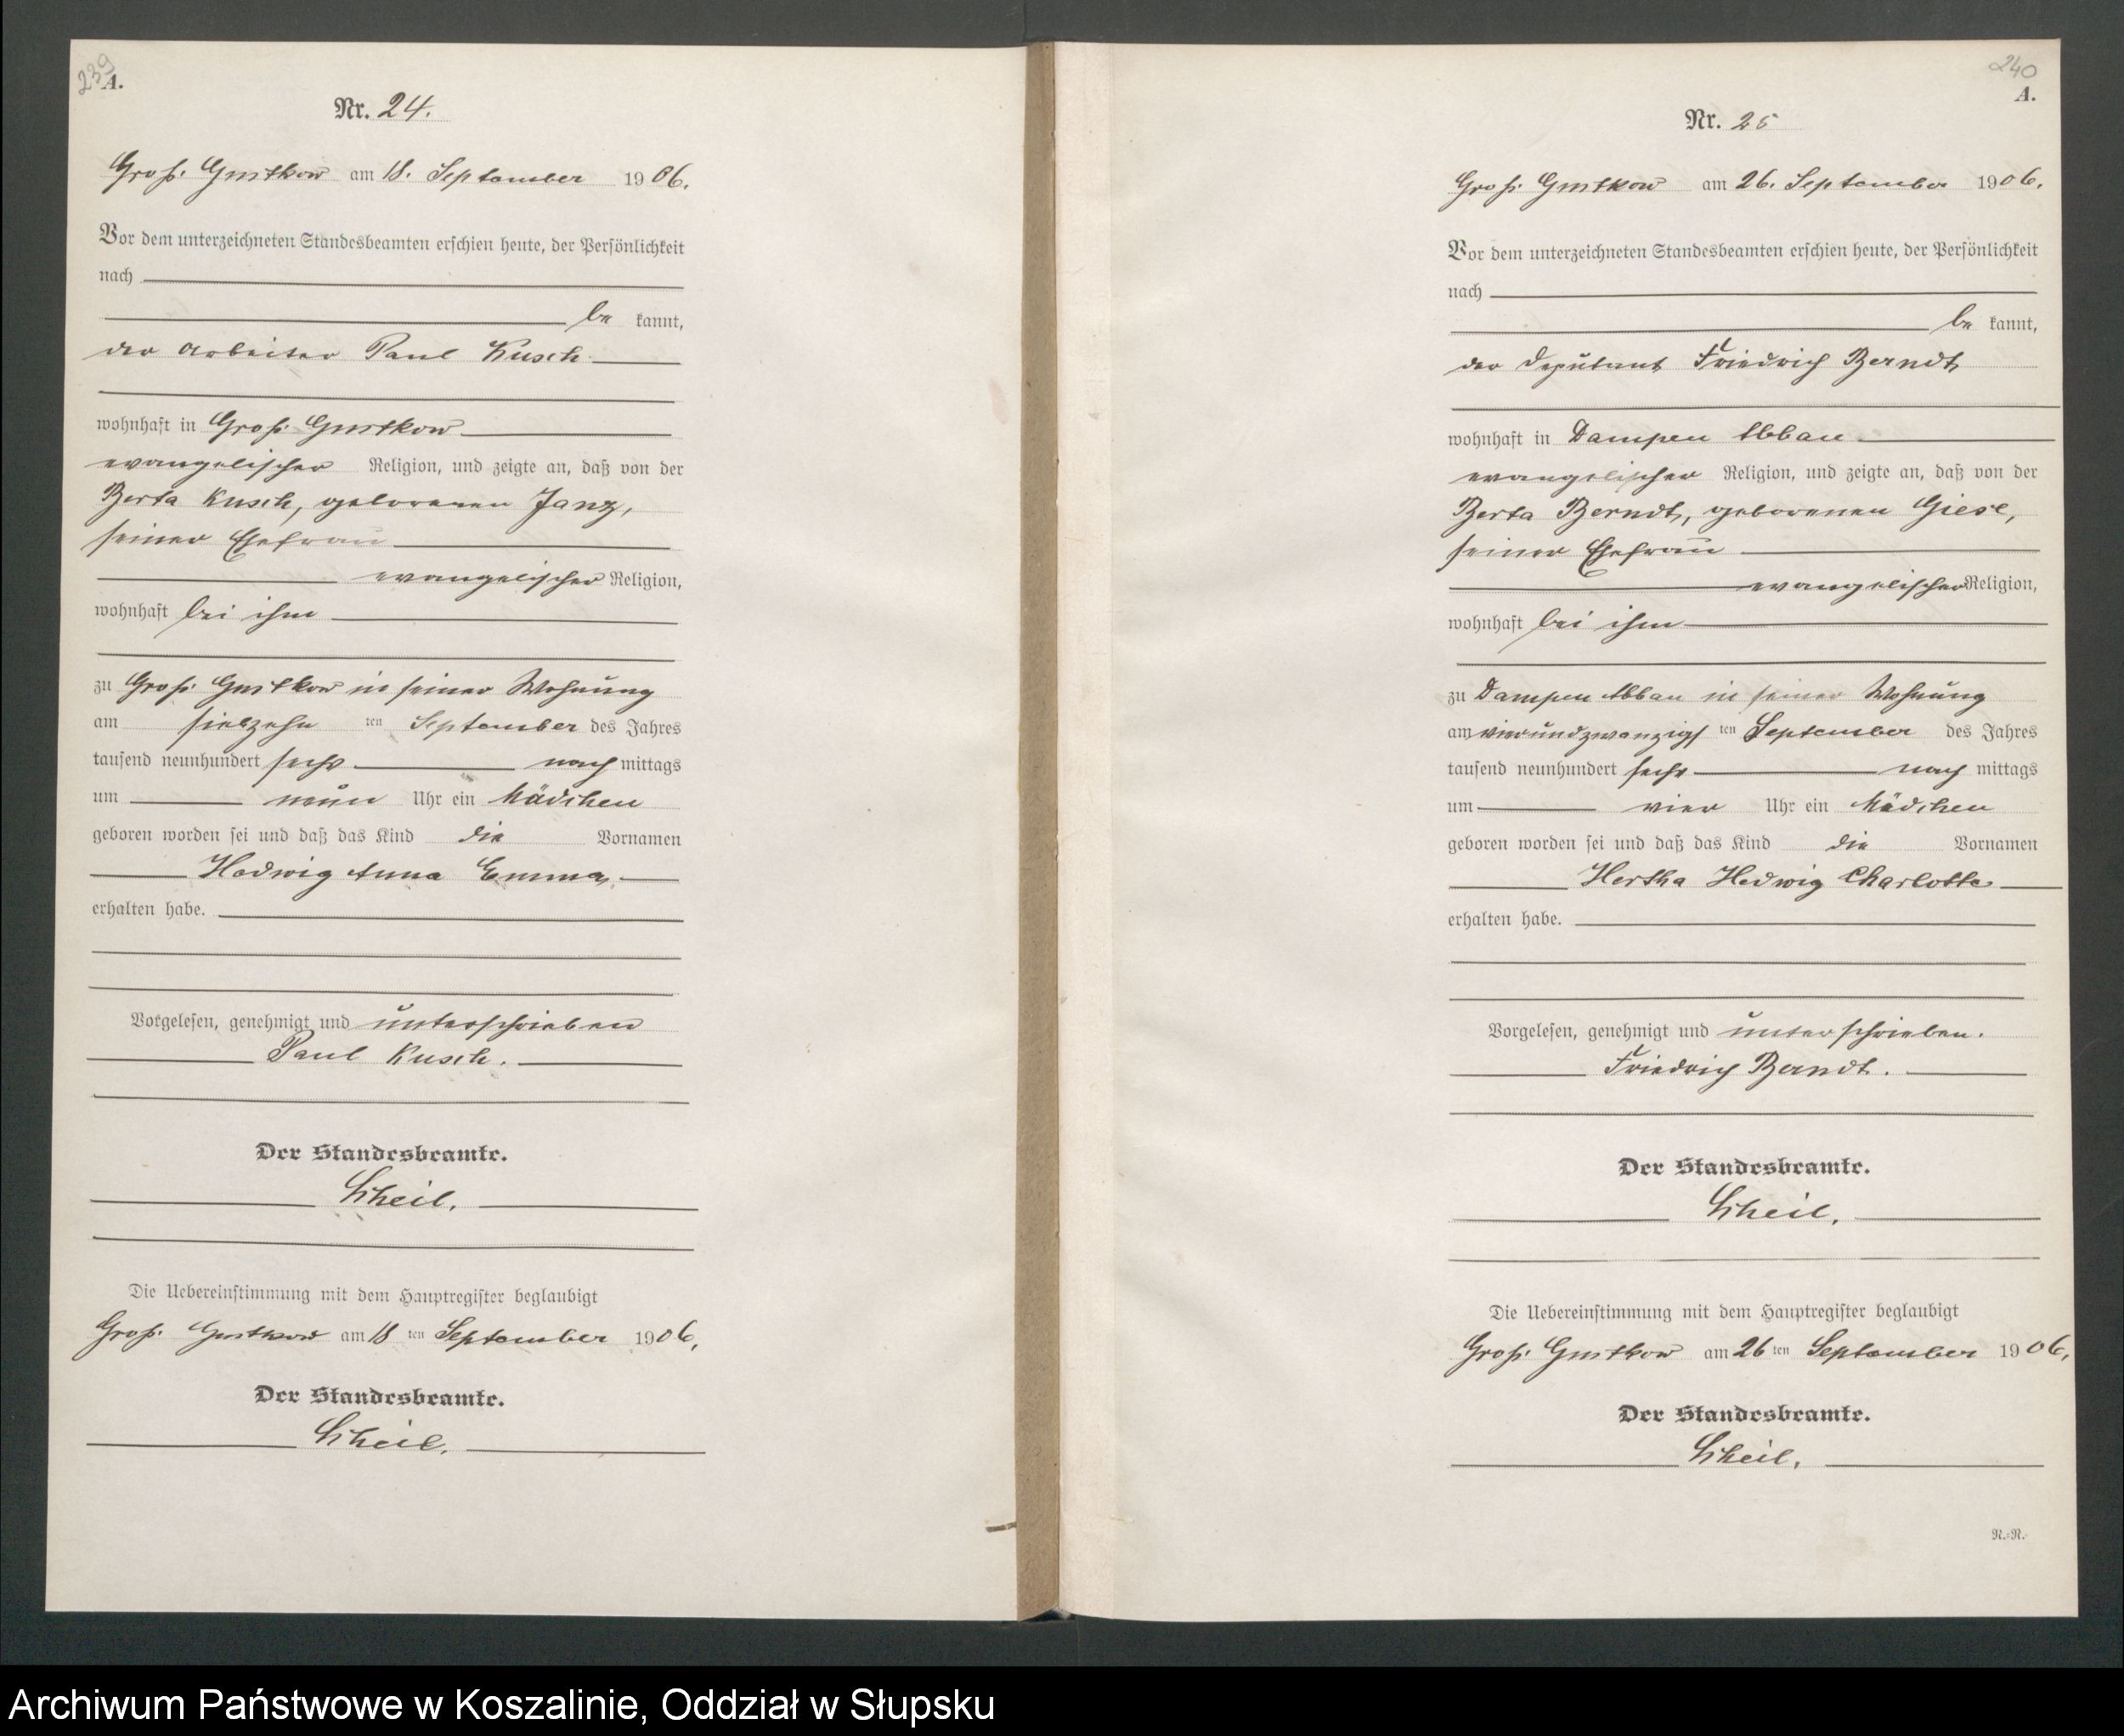 239
A.
Nr. 24.
Groß Gustkow am 18. September 1906.
Vor dem unterzeichneten Standesbeamten erschien heute, der Persönlichkeit
nach
be kannt,
der Arbeiter Paul Kusch
wohnhaft in Groß Gustkow
evangelischer Religion, und zeigte an, daß von der
Berta Kusch, geborenen Janz,
seiner Ehefrau
evangelischer Religion,
wohnhaft bei ihm
zu Groß Gustkow in seiner Wohnung
am siebzehn ten September des Jahres
tausend neunhundert sechs nach mittags
um neun Uhr ein Mädchen
geboren worden sei und daß das Kind die Vornamen
Hedwig Anna Emma
erhalten habe.
Vorgelesen, genehmigt und unterschrieben
Paul Kusch.
Der Standesbeamte.
Scheil.
Die Uebereinstimmung mit dem Hauptregister beglaubigt
Groß Gustkow am 18 ten September 1906.
Der Standesbeamte.
Scheil.
240
A.
Nr. 25
Groß Gustkow am 26. September 1906.
Vor dem unterzeichneten Standesbeamten erschien heute, der Persönlichkeit
nach
be kannt,
der Deputant Friedrich Berndt
wohnhaft in Dampen Abbau
evangelischer Religion, und zeigte an, daß von der
Berta Berndt, geborenen Giese,
seiner Ehefrau
evangelischer Religion,
wohnhaft bei ihm
zu Dampen Abbau in seiner Wohnung
am vierundzwanzigs ten September des Jahres
tausend neunhundert sechs nach mittags
um vier Uhr ein Mädchen
geboren worden sei und daß das Kind die Vornamen
Hertha Hedwig Charlotte
erhalten habe.
Vorgelesen, genehmigt und unterschrieben.
Friedrich Berndt.
Der Standesbeamte.
Scheil.
Die Uebereinstimmung mit dem Hauptregister beglaubigt
Groß Gustkow am 26 ten September 1906.
Der Standesbeamte.
Scheil.
N.=N.
Archiwum Państwowe w Koszalinie, Oddział w Słupsku